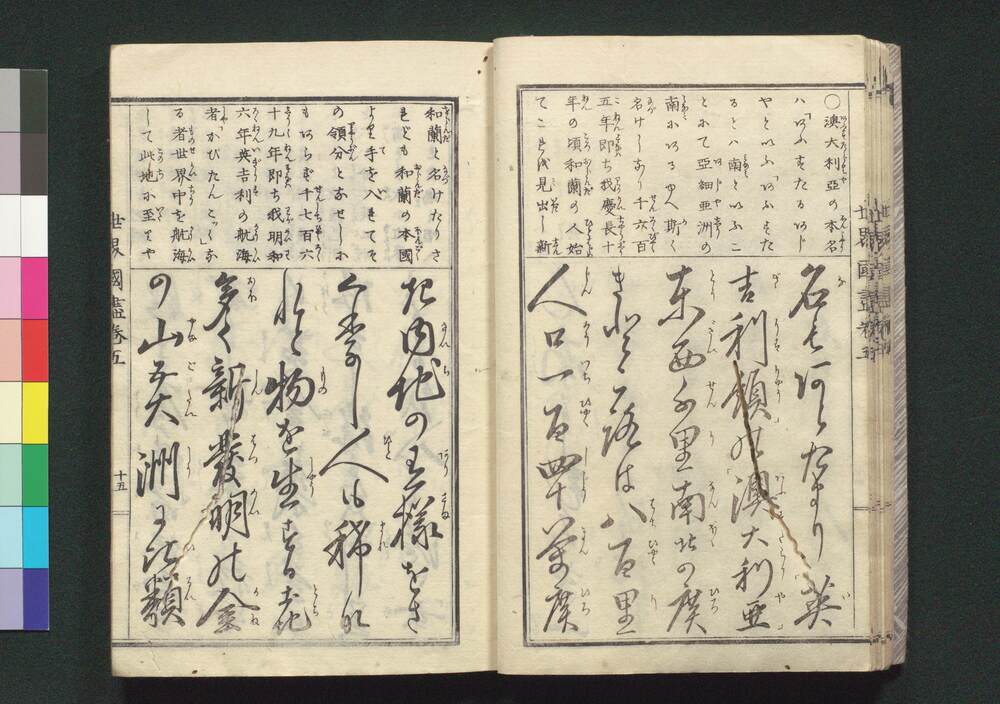 ○澳太利亞の本名
ハ「あふすたるあじ
や」といふ「あふすた
る」とハ南といふこ
とにて亞細亞洲の
南にあるゆへ斯く
名けしなり千六百
五年即ち我慶長十
年の頃和蘭の人始
てこれを見出し新
名も阿らたまり英
吉利領の澳大利亜
東西千里南北の廣
きところは八百里
人口一百四十萬廣
和蘭と名けたりさ
れども和蘭の本國
より手を入れてそ
の領分となせしに
もあらず千七百六
十九年即ち我明和
六年英吉利の航海
者「かぴたんこっく」な
る者世界中を航海
して此地に至りや
き内地の有様をさ
く
人も稀れ
物を生
多く新發明の金
の山五大洲に比類
世界國盡卷五
十五